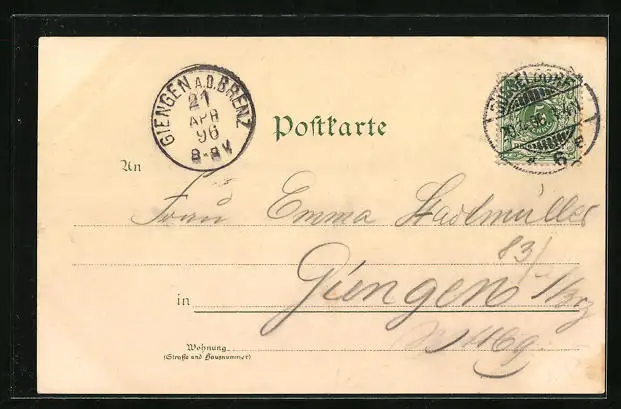 GIENGEN A.D.BRENZ
21
APR
96
8-9V
Postkarte
DÜSSELDORF
5
6-
An
Frau Emma Stadlmüller
83/
in Giengen a/Brz
Wttbg.
Wohnung
(Straße und Hausnummer)